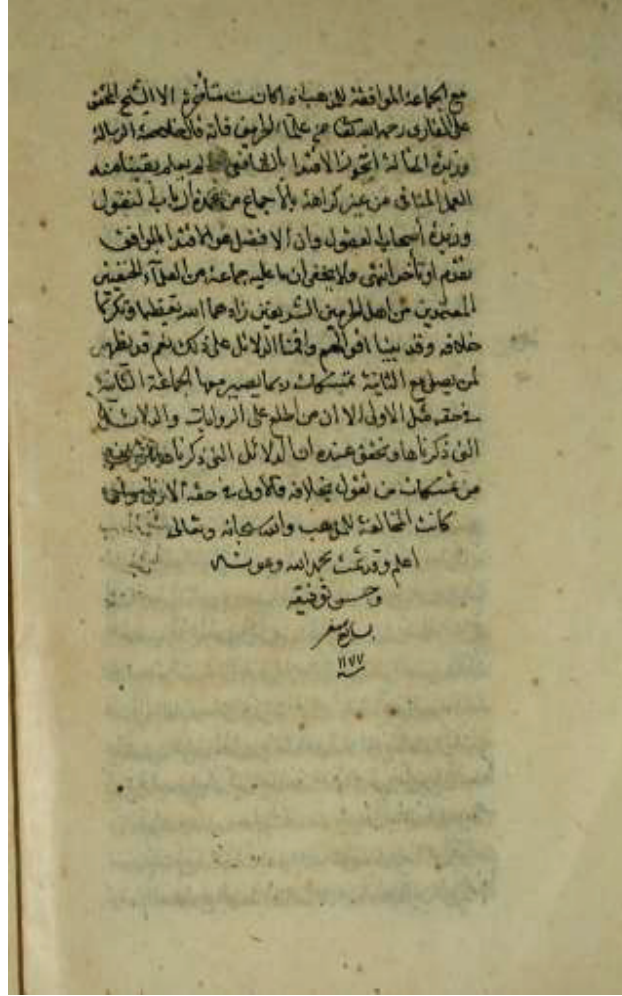 مع الجماعة الموافقة للمذهب اذا كانت متأخرة الا الشيخ المحقق
على القارى رحمه الله تعالى من علماء الحرمين فانه قال خلاصة الرسالة
وزبدة المقالة تجوز الاقتدا بالشافعى لم يعلم يقينا منه
العمل المنافى من غير كراهة بالاجماع من عمدة ارباب النقول
وزبدة أصحاب العقول وان الافضل هو الاقتدا بالموافق
تقدم او تأخر انتهى ولا يخفى ان ما عليه جماعة من العلمآء الحنفيين
المعتمدين من اهل الحرمين الشريفين زادهما الله تعظيما وتكريما
خلافه وقد بينا اقوالهم واقمنا الدلائل على ذلك نعم قد يظهر
لمن يصلى مع الثانية تمسكات ربما يصير معها الجماعة الثانية
فى حقه مثل الاولى الا ان من اطلع على الروايات والدلائل
التى ذكرناها وتحقق عنده ان الدلائل التى ذكرناها
من تمسكات من يقول بخلافه فالاولى فى حقه
كانت المخالفة للمذهب والله سبحانه وتعالى
اعلم وقد تمت بحمد الله وعونه
وحسن توفيقه
صفر
١١٧٧
سنه